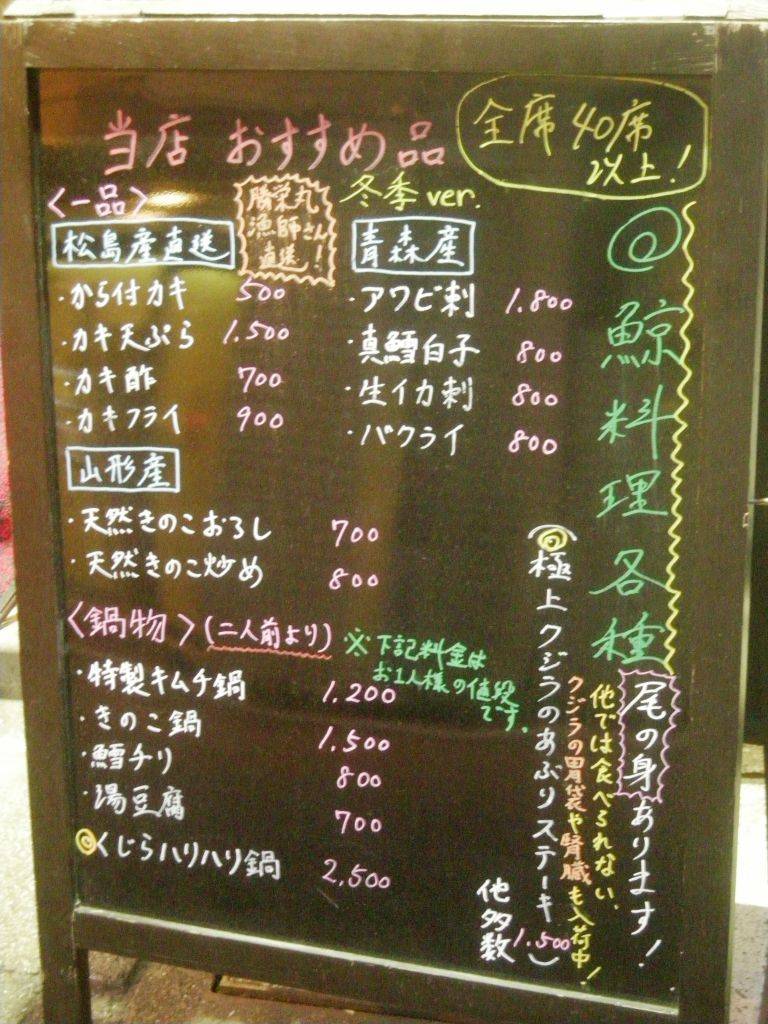 当店 おすすめ品
全席40席
以上!
<一品>
勝栄丸
漁師さん
直送!
冬季 ver.
松島産直送
・から付カキ 500
・カキ天ぷら 1.500
・カキ酢 700
・カキフライ 900
青森産
・アワビ刺 1.800
・真鱈白子 800
・生イカ刺 800
・バクライ 800
山形産
・天然きのこおろし 700
・天然きのこ炒め 800
<鍋物>(二人前より)
※下記料金は
お1人様の値段
です。
・特製キムチ鍋 1.200
・きのこ鍋 1.500
・鱈チリ 800
・湯豆腐 700
◎くじらハリハリ鍋 2,500
◎鯨料理各種
尾の身あります!
他では食べられない、
クジラの胃袋や腎臓も入荷中!
◎極上クジラのあぶりステーキ 1.500
他多数